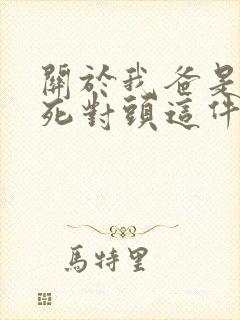 關於我爸是
死對頭這件
馬特里